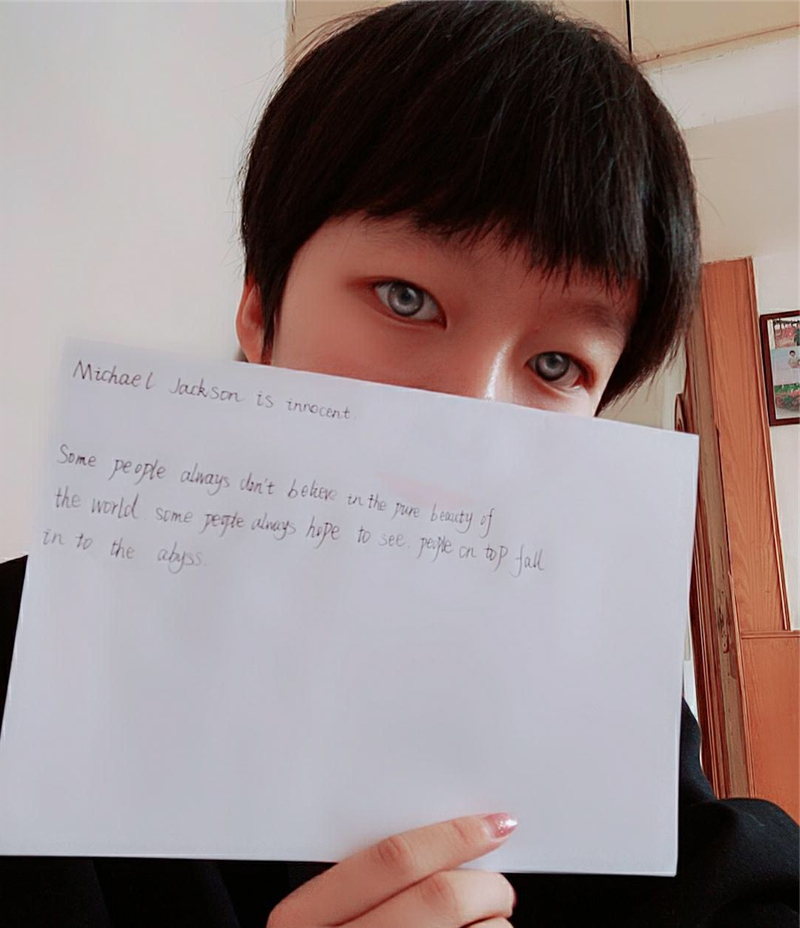 Michael Jackson is innocent
Some people always don't believe in the pure beauty of
the world. some people always hope to see. people on top fall
in to the abyss.